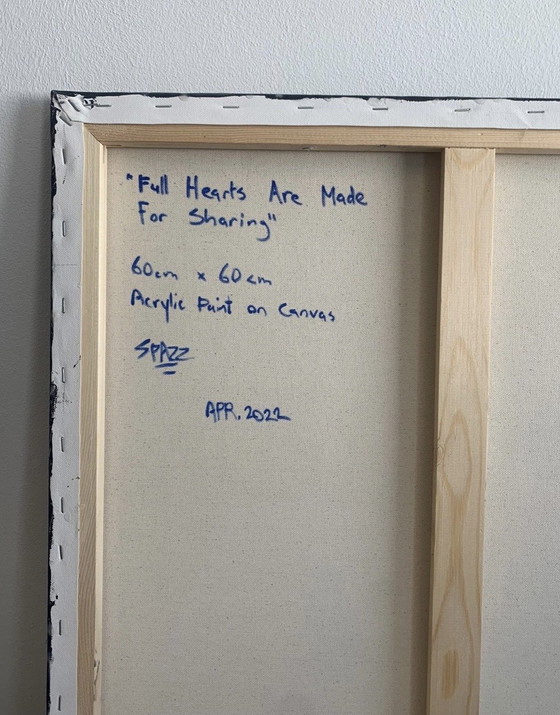 "Full Hearts Are Made
For Sharing"
60cm x 60cm
Acrylic Paint on Canvas
SPAZZ
APR. 2022